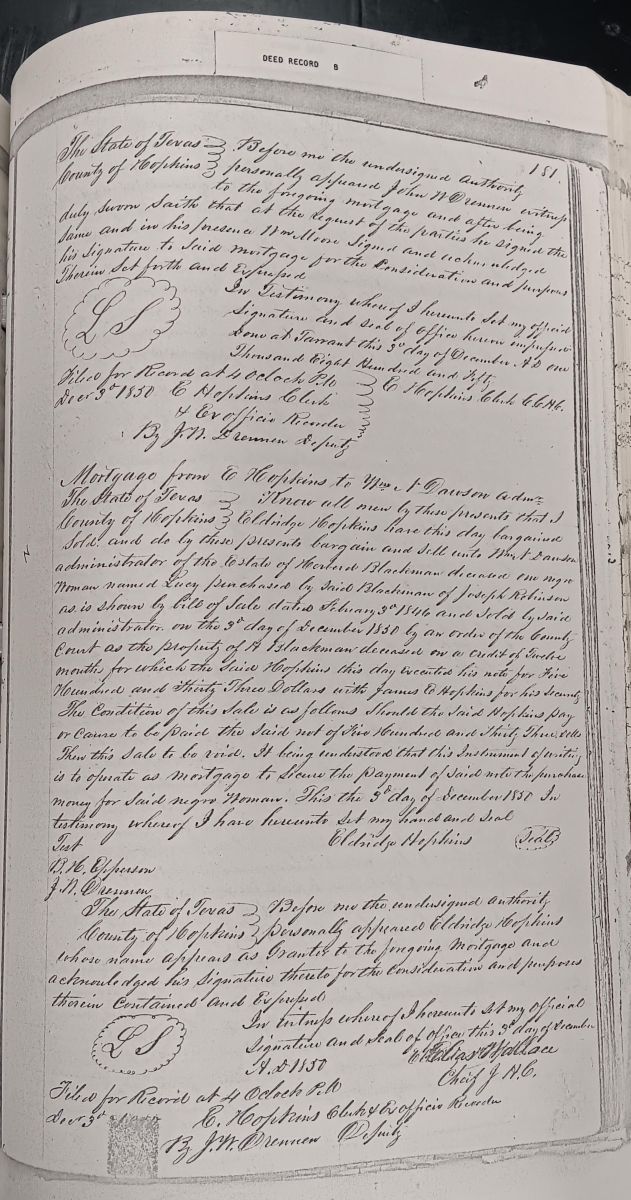 DEED RECORD B
151.
The State of Texas } Before me the undersigned authority
County of Hopkins } personally appeared John W Drennen witness
to the foregoing mortgage and after being
duly sworn saith that at the request of the parties he signed the
same and in his presence Wm Moore Signed and acknowledged
his Signature to Said mortgage for the Consideration and purposes
Therein Set forth and Expressed
In Testimony whereof I hereunto Set my official
Signature and Seal of Office hereon impressed
Done at Tarrant this 3d day of December A D one
Thousand Eight Hundred and Fifty
L S
E Hopkins Clerk C.C.H.C.
Filed for Record at 4 Oclock P.M
Decr 3d 1850 E Hopkins Clerk
& Exofficio Recorder
By J.W. Drennen Deputy
Mortgage from E Hopkins to Wm A Dawson Admr
The State of Texas } Know all men by these presents that I
County of Hopkins } Eldridge Hopkins have this day bargained
Sold, and do by these presents bargain and Sell unto Wm A Dawson
administrator of the Estate of Blackman deceased one negro
Woman named Lucy purchased by Said Blackman of Joseph Robinson
as is shown by bill of Sale dated February 3d 1846 and Sold by Said
administrator on the 3d day of December 1850 by an order of the County
Court as the property of H Blackman deceased on a credit of Twelve
months for which the Said Hopkins this day executed his note for Five
Hundred and Thirty Three Dollars with James E Hopkins for his Security
The Condition of this Sale is as follows Should the Said Hopkins pay
or Cause to be paid the said not of Five Hundred and Thirty Three dolls
Then this Sale to be void. It being understood that this Instrument of writing
is to operate as mortgage to Secure the payment of Said note the purchase
money for Said negro Woman. This the 3d day of December 1850 In
testimony whereof I have hereunto Set my hand and Seal
Test Eldridge Hopkins (Seal)
B.H. Epperson
J.W. Drennen
The State of Texas } Before me the undersigned authority
County of Hopkins } personally appeared Eldridge Hopkins
whose name appears as Grantor to the foregoing Mortgage and
acknowledged his Signature thereto for the Consideration and purposes
therein Contained and Expressed
In witness whereof I hereunto Set my Official
Signature and Seal of office this 3d day of December
A.D 1850
L S
Wallace
Chief J H.C.
Filed for Record at 4 Oclock P.M
Decr 3d 1850
E. Hopkins Clerk & Ex officio Recorder
By J.W. Drennen Deputy